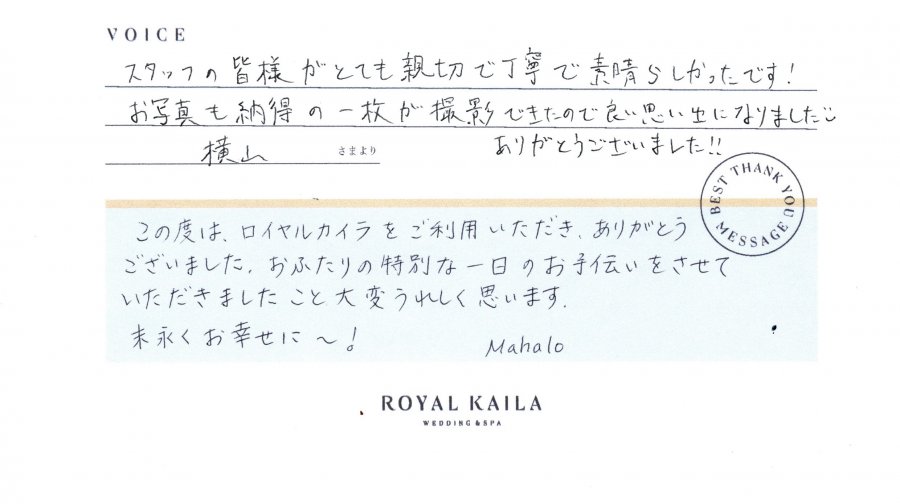 VOICE
スタッフの皆様がとても親切で丁寧で素晴らしかったです!
お写真も納得の一枚が撮影できたので良い思い出になりました
横山 さまより ありがとうございました!!
BEST THANK YOU MESSAGE
この度は、ロイヤルカイラをご利用いただき、ありがとう
ございました。おふたりの特別な一日のお手伝いをさせて
いただきましたこと大変うれしく思います。
末永くお幸せに〜!
Mahalo
ROYAL KAILA
WEDDING & SPA